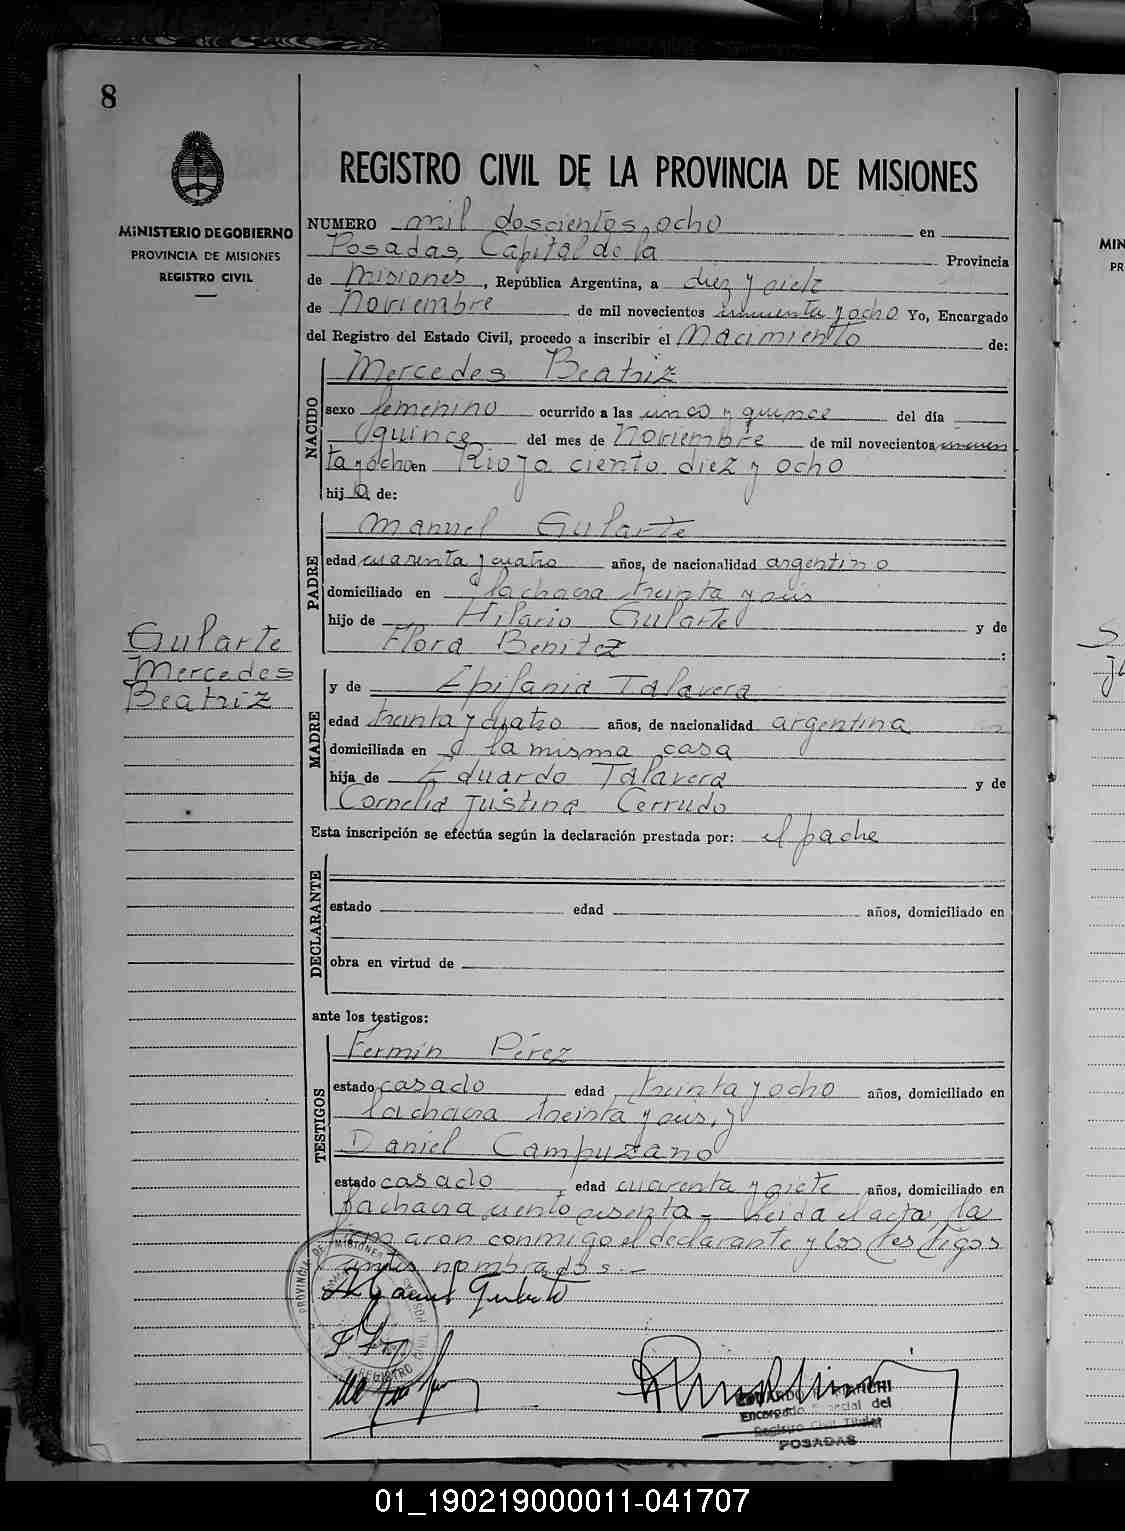 8
REGISTRO CIVIL DE LA PROVINCIA DE MISIONES
MINISTERIO DE GOBIERNO
PROVINCIA DE MISIONES
REGISTRO CIVIL
NUMERO mil doscientos ocho en
Posadas, Capital de la Provincia
de Misiones, República Argentina, a diez y siete
de Noviembre de mil novecientos cincuenta y ocho Yo, Encargado
del Registro del Estado Civil, procedo a inscribir el Nacimiento de:
NACIDO
Mercedes Beatriz
sexo femenino ocurrido a las cinco y quince del día
quince del mes de Noviembre de mil novecientos cincuen
ta y ocho en Rioja ciento diez y ocho
hija de:
PADRE
Manuel Gularte
edad cuarenta y cuatro años, de nacionalidad argentino
domiciliado en la chacra treinta y seis
hijo de Hilario Gularte y de
Flora Benitez :
Gularte
Mercedes
Beatriz
MADRE
y de Epifania Talavera
edad treinta y cuatro años, de nacionalidad argentina
domiciliada en la misma casa
hija de Eduardo Talavera y de
Cornelia Justina Cerrudo
Esta inscripción se efectúa según la declaración prestada por: el padre
DECLARANTE
estado edad años, domiciliado en
obra en virtud de
ante los testigos:
TESTIGOS
Fermín Pérez
estado casado edad treinta y ocho años, domiciliado en
la chacra treinta y seis, y
Daniel Campuzano
estado casado edad cuarenta y siete años, domiciliado en
la chacra ciento sesenta - Leida el acta, la
firmaron conmigo el declarante y los testigos
antes nombrados.-
Manuel Gularte
PROVINCIA DE MISIONES
REGISTRO CIVIL
POSADAS
Encargado del
Registro Civil Titular
POSADAS
MIN
PR
01_190219000011-041707